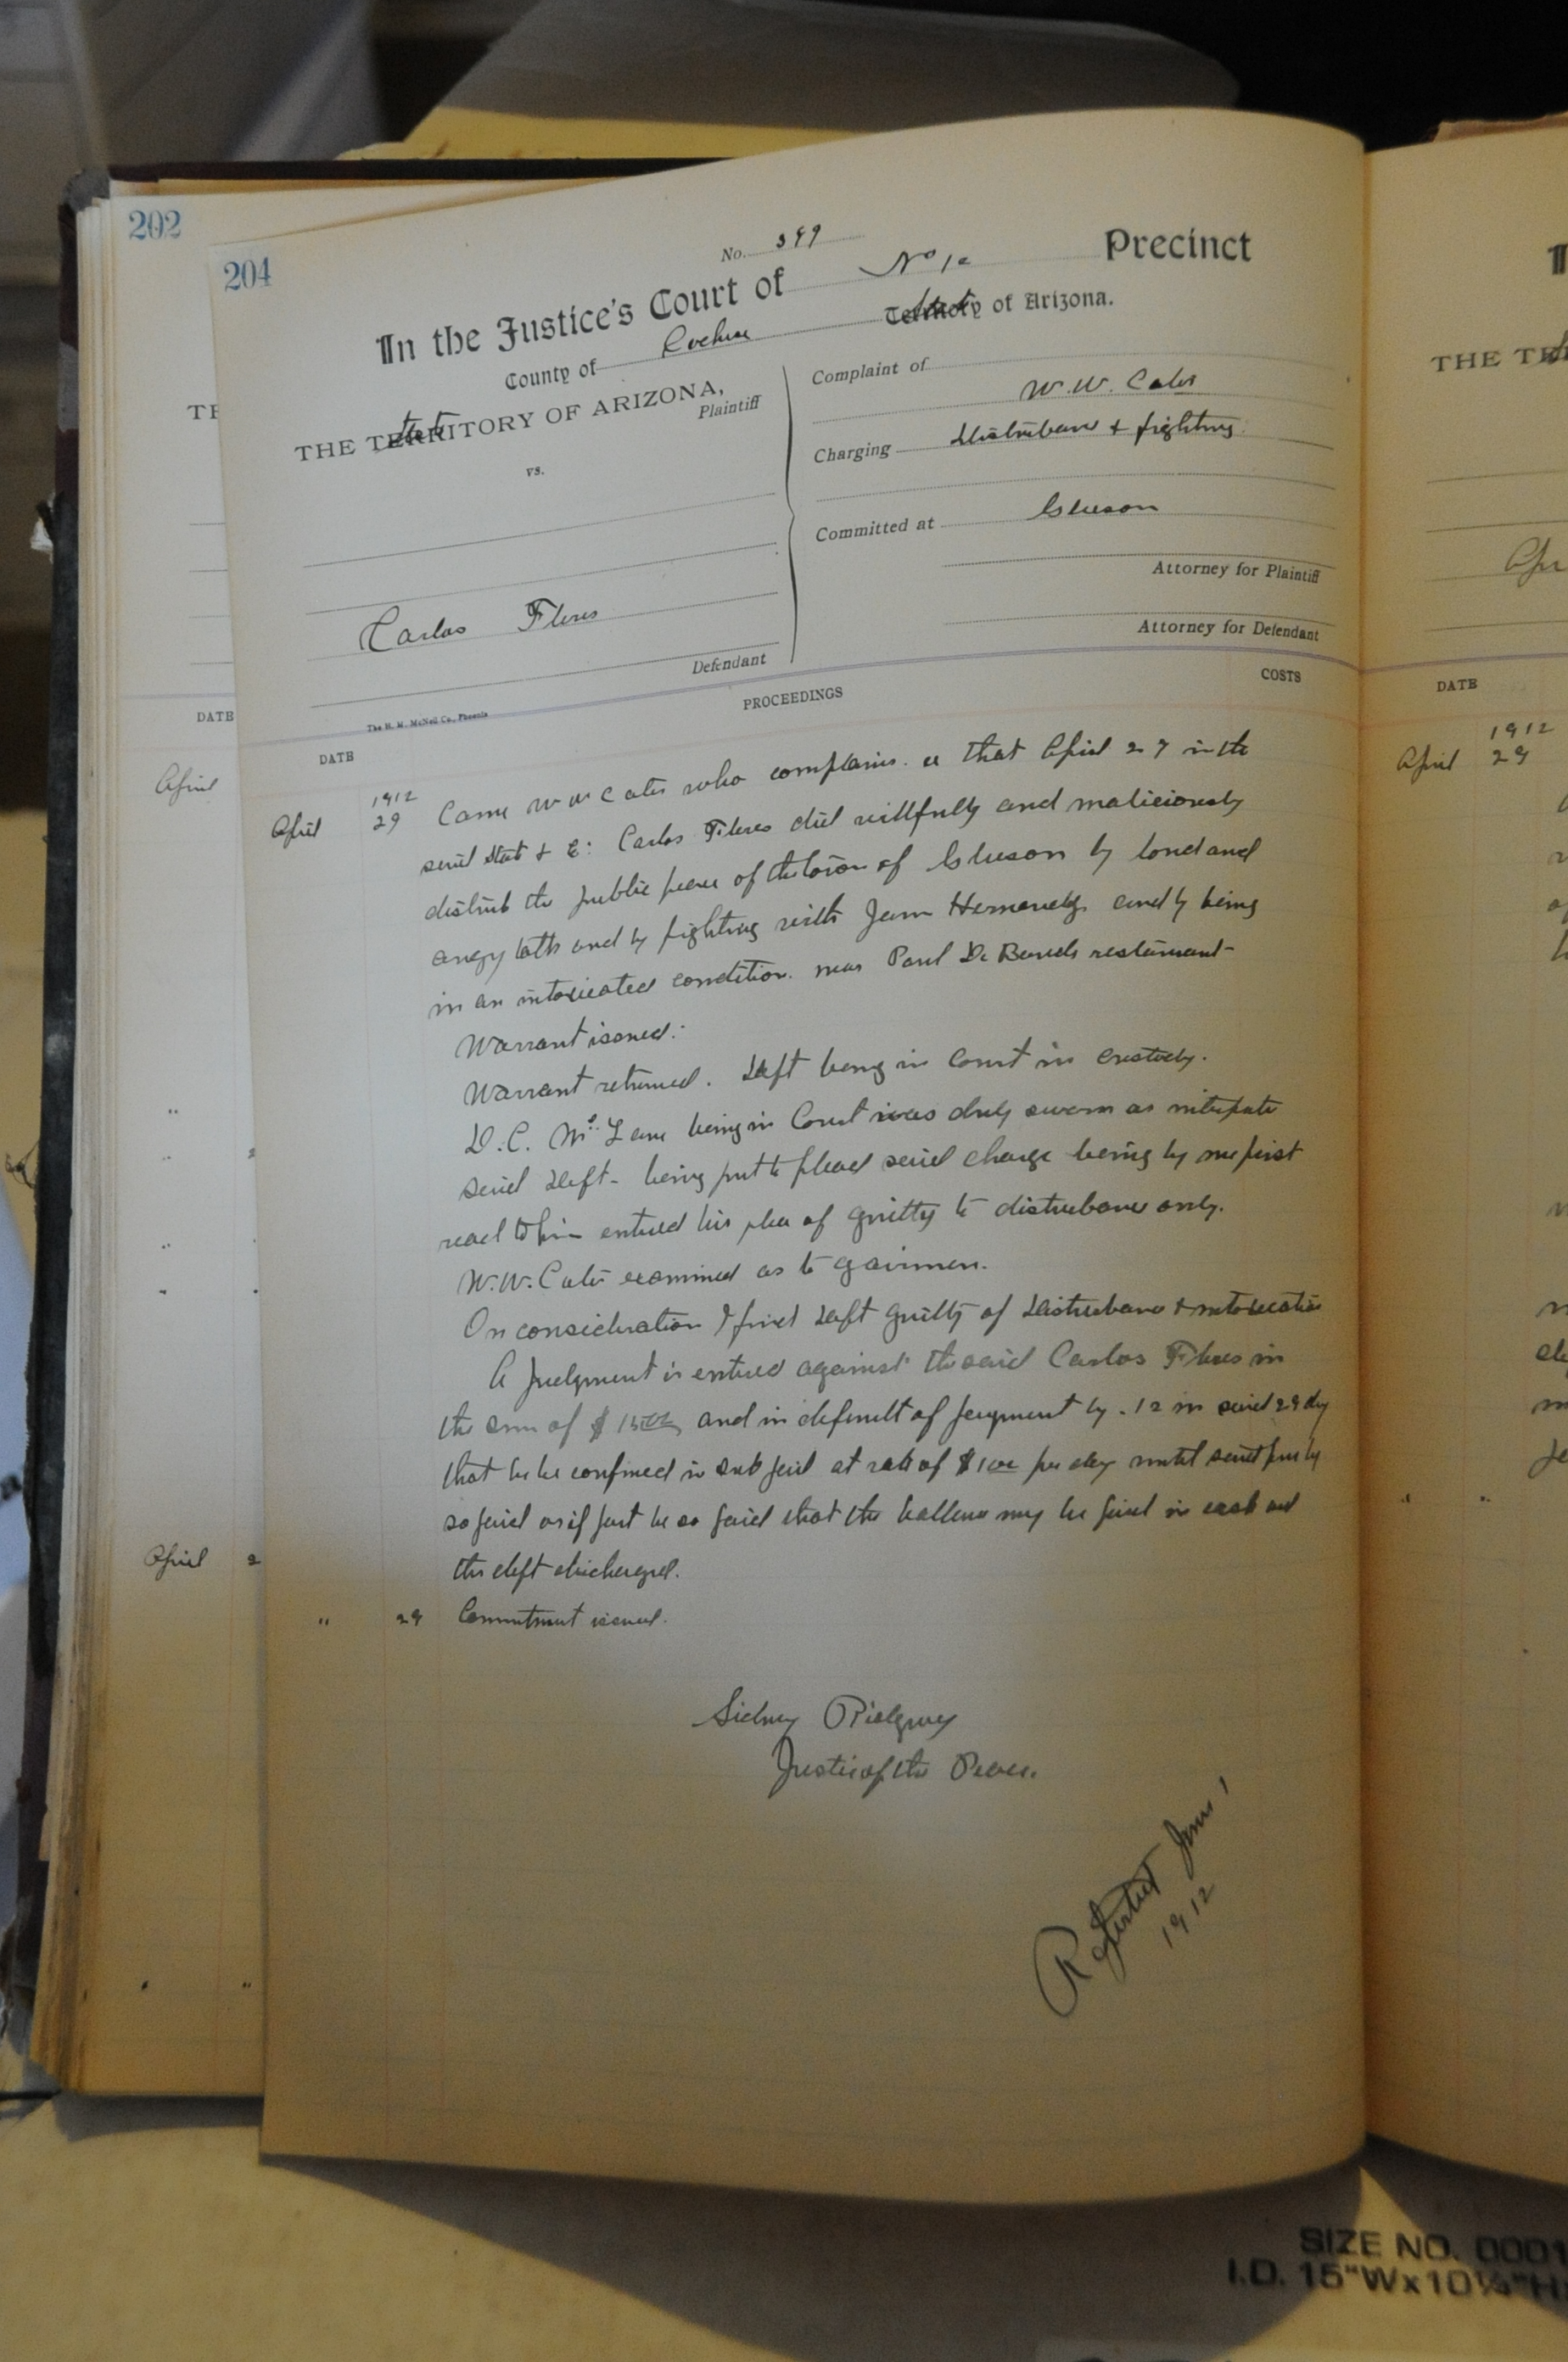 202
204
No. 399
In the Justice's Court of No 12 Precinct
County of Cochise State of Arizona.
THE State OF ARIZONA,
Plaintiff
vs.
Carlos Flores
Defendant
Complaint of
W. W. Cates
Charging Disturbance & fighting
Committed at Gleeson
Attorney for Plaintiff
Attorney for Defendant
The H. H. McNeil Co., Phoenix
DATE PROCEEDINGS COSTS
1912
April 29 Came W W Cates who complains that April 27 in the
said State & C: Carlos Flores did willfully and maliciously
disturb the public peace of the town of Gleeson by loud and
angry oaths and by fighting with Juan Hernandez and by being
in an intoxicated condition. near Paul De Bends restaurant
Warrant issued:
Warrant returned. Deft being in Court in custody.
D. C. Mc Lane being in Court was duly sworn as interpreter
Said Deft being put to plead said charge being by me first
read to him entered his plea of guilty to disturbance only.
W. W. Cates examined as to
On consideration I find Deft guilty of Disturbance & intoxication
A Judgment is entered against the said Carlos Flores in
the sum of $ 15 00 and in default of payment by 12 m said 29 day
that he be confined in sub jail at rate of $1 00 per day until said fine be
so paid or if part be so paid that the ballance may be paid in cash and
the deft discharged.
" 29 Commitment issued.
Sidney Ridgway
Justice of the Peace.
1912
TE
DATE
April
April 2
THE
DATE
1912
April 29
SIZE NO. 0001
I.D. 15"Wx10¼"H